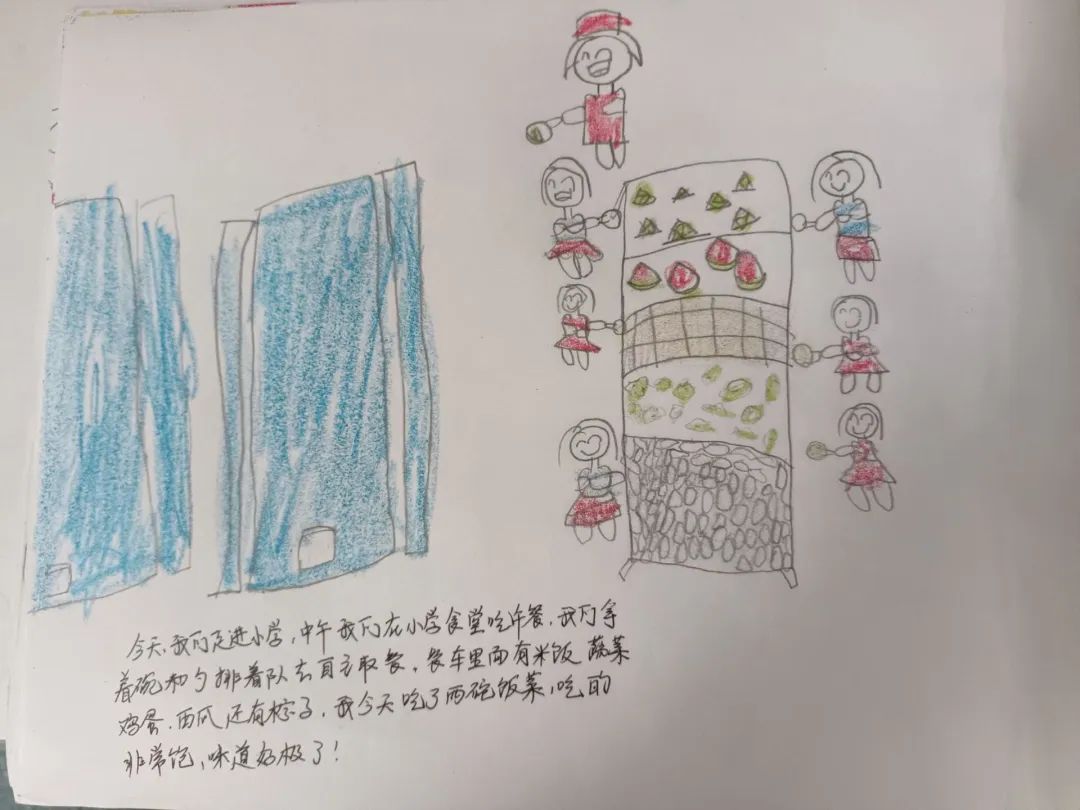 今天,我们走进小学,中午我们在小学食堂吃午餐,我们拿
着碗和勺排着队去自主取餐,餐车里面有米饭 蔬菜
鸡蛋、西瓜,还有粽子,我今天吃了两碗饭菜,吃的
非常饱,味道好极了!